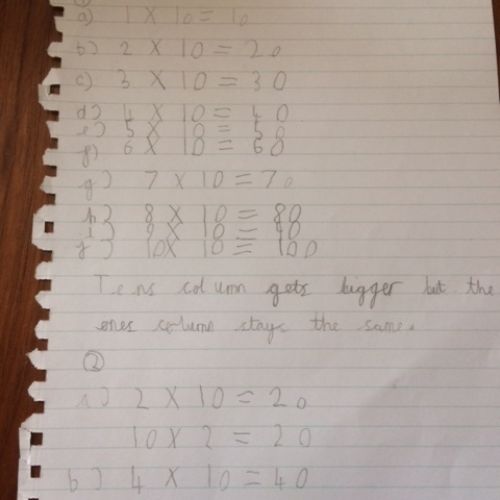 a) 1 X 10 = 10
b) 2 X 10 = 20
c) 3 X 10 = 30
d) 4 X 10 = 40
e) 5 X 10 = 50
f) 6 X 10 = 60
g) 7 X 10 = 70
h) 8 X 10 = 80
i) 9 X 10 = 90
j) 10X 10 = 100
Tens column gets bigger but the
ones column stays the same.
②
a) 2 X 10 = 20
10 X 2 = 20
b) 4 X 10 = 40